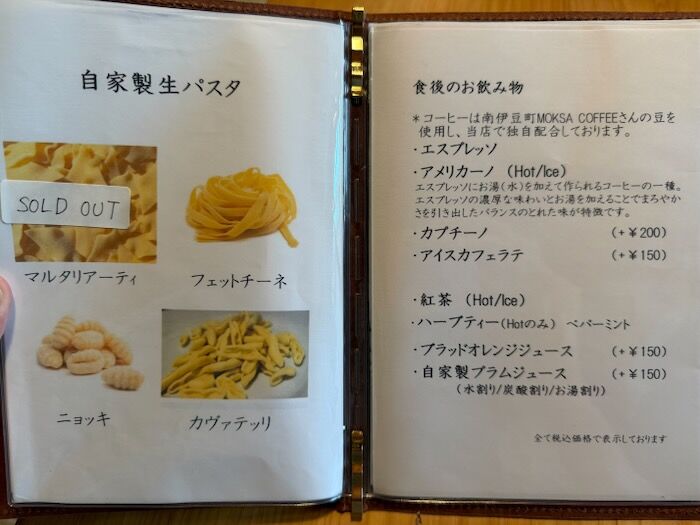 自家製生パスタ
SOLD OUT
マルタリアーティ
フェットチーネ
ニョッキ
カヴァテッリ
食後のお飲み物
＊コーヒーは南伊豆町MOKSA COFFEEさんの豆を
使用し、当店で独自配合しております。
・エスプレッソ
・アメリカーノ (Hot/Ice)
エスプレッソにお湯(水)を加えて作られるコーヒーの一種。
エスプレッソの濃厚な味わいとお湯を加えることでまろやか
さを引き出したバランスのとれた味が特徴です。
・カプチーノ (+¥200)
・アイスカフェラテ (+¥150)
・紅茶 (Hot/Ice)
・ハーブティー(Hotのみ) ペパーミント
・ブラッドオレンジジュース (+¥150)
・自家製プラムジュース (+¥150)
(水割り/炭酸割り/お湯割り)
全て税込価格で表示しております